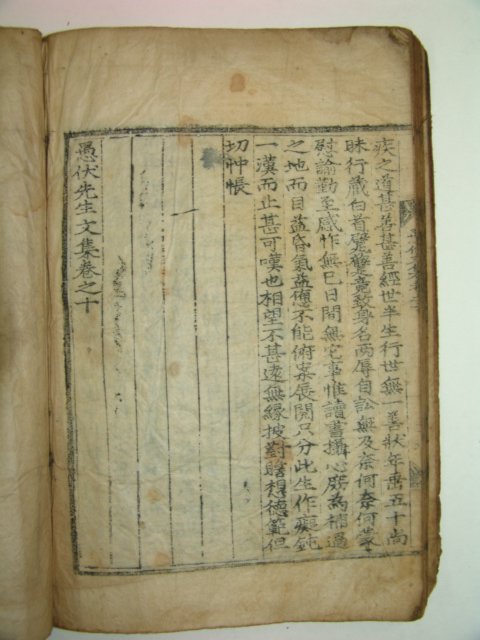 疾之道甚善甚善經世半生行世無一善狀年垂五十尚
昧行藏白首竟致身名兩辱自訟無及奈何奈何蒙
慰諭勤至感怍無已日間無它事惟讀書攝心庶爲補過
之地而目益昏氣益憊不能俯案展閱只分此生作痴鈍
一漢而止甚可嘆也相望不甚遠無緣披對瞻想德範但
切忡悵
愚伏先生文集卷之十